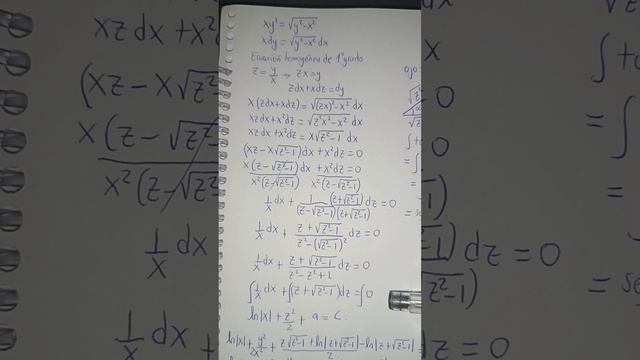 xy' = √(y²-x²)
xdy = √(y²-x²) dx
Ecuación homogénea de 1º grado
z = y/x → zx = y
zdx + xdz = dy
x(zdx + xdz) = √((zx)²-x²) dx
xzdx + x²dz = √(z²x²-x²) dx
xzdx + x²dz = x√(z²-1) dx
(xz - x√(z²-1))dx + x²dz = 0
x(z - √(z²-1))dx + x²dz = 0
x²(z-√(z²-1)) x²(z-√(z²-1))
1/x dx + 1(z+√(z²-1))/((z-√(z²-1))(z+√(z²-1))) dz = 0
1/x dx + (z+√(z²-1))/(z²-(√(z²-1))²) dz = 0
1/x dx + (z+√(z²-1))/(z²-z²+1) dz = 0
∫1/x dx + ∫(z+√(z²-1))dz = ∫0
ln|x| + z²/2 + a = C.
ln|x| + y²/2x² + (z√(z²-1) + ln|z+√(z²-1)|)/2 - ln|z+√(z²-1)| =